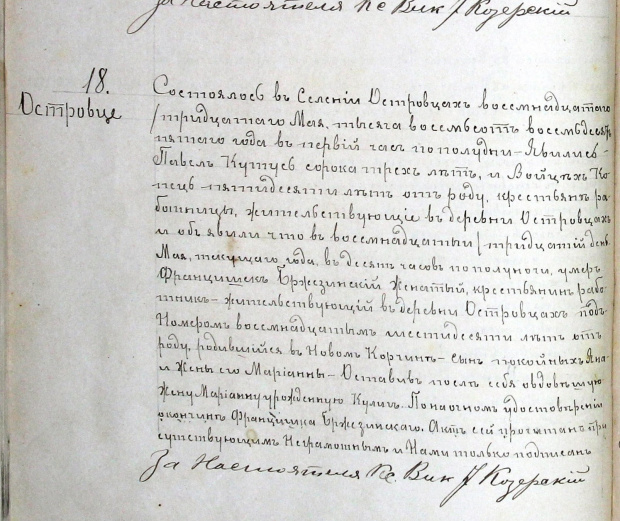 За Настоятеля Кс Вик J Козерскій
18.
Островце
Состоялось въ Селеніи Островцахъ восемнадцатаго
/тридцатаго Мая, тысяча восемьсотъ восемьдесятъ
пятаго года въ первій часъ пополудни - Явились -
Павелъ Кутусъ сорока трехъ лѣтъ, и Войцѣхъ Ко-
пецъ пятидесяти лѣтъ отъ роду, крестьяне ра-
ботницы, жительствующіе въ деревни Островцахъ
и объявили что въ восемнадцатый / тридцатій день
Мая, текущаго года, въ десять часовъ пополуночи, умеръ
Францишекъ Бржезинскій женатый, крестьянинъ рабо-
тникъ - жительствующій въ деревни Островцахъ подъ
Номеромъ восемнадцатымъ шестидесяти лѣтъ отъ
роду, родившійся въ Новомъ Корчинѣ - сынъ покойныхъ Яна
и жены его Маріанны - Оставивъ послѣ себя овдовѣвшую
жену Маріанну урожденную Кулигъ. По наочномъ удостовѣреніи
о кончинѣ Францишка Бржезинскаго. Актъ сей прочитанъ при-
сутствующимъ Неграмотнымъ и Нами только подписанъ
За Настоятеля Кс Вик J Козерскій